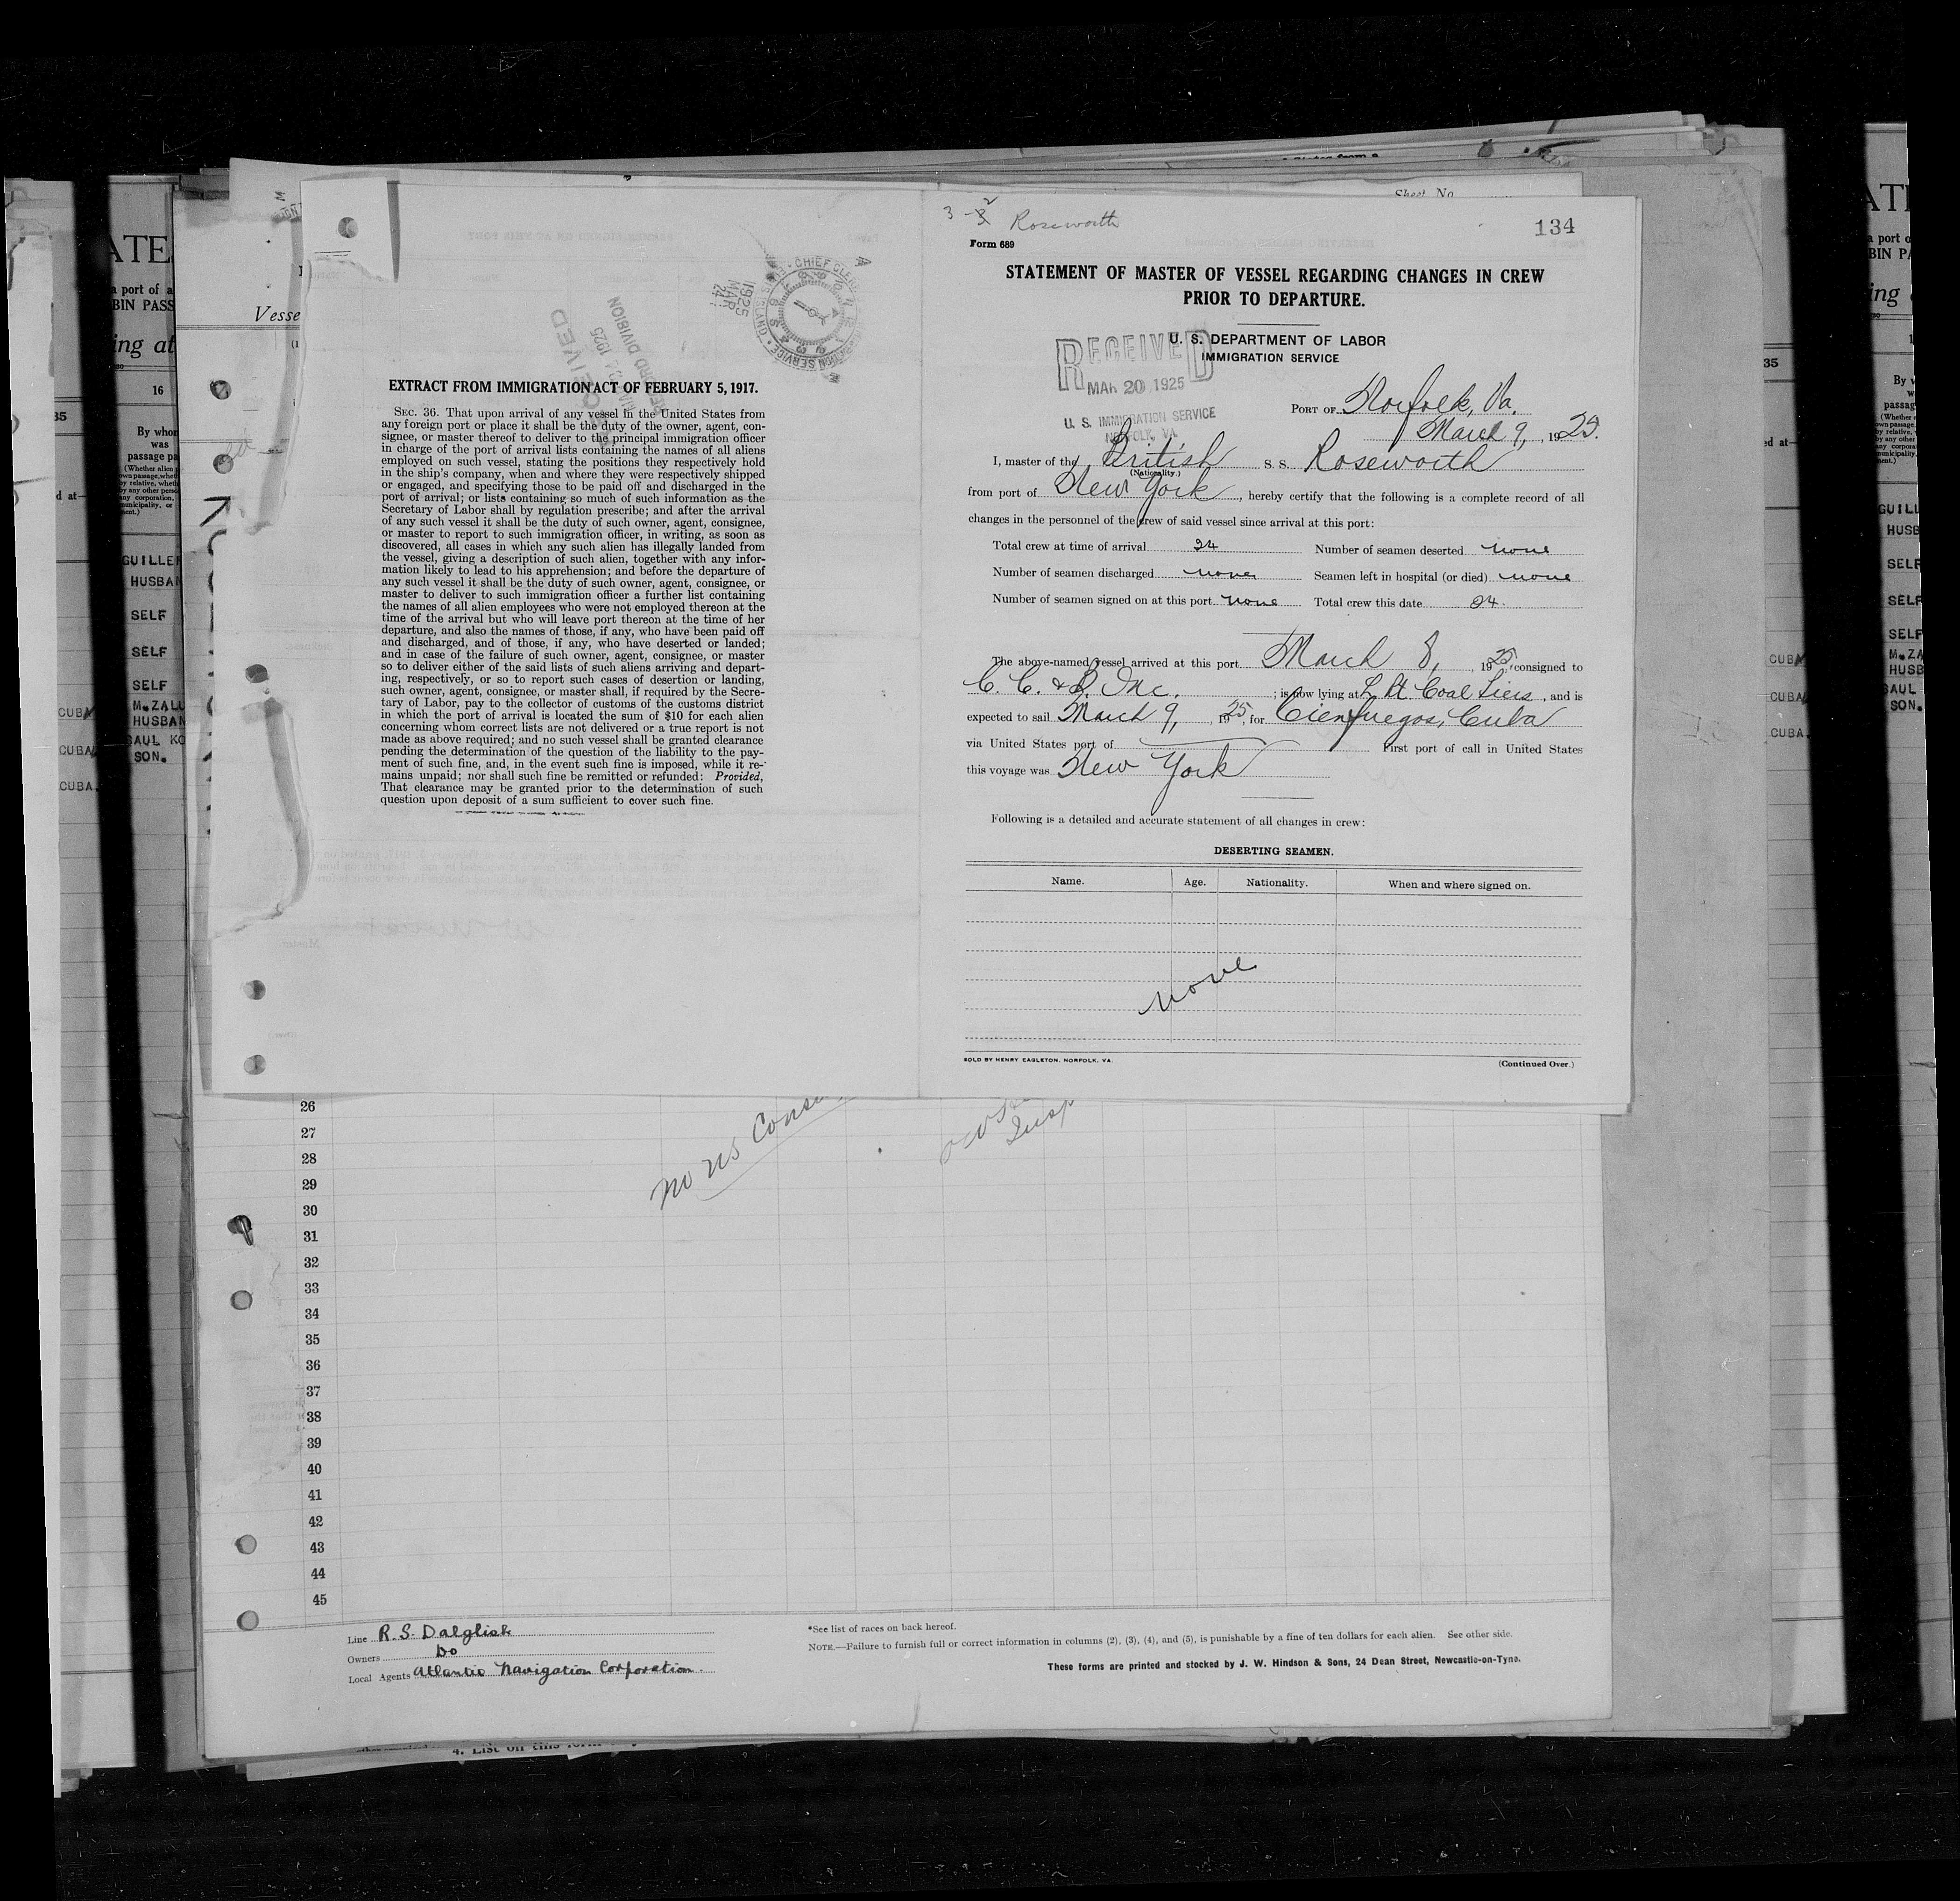 134
3 Roseworth
Form 689
STATEMENT OF MASTER OF VESSEL REGARDING CHANGES IN CREW
PRIOR TO DEPARTURE.
U. S. DEPARTMENT OF LABOR
IMMIGRATION SERVICE
RECEIVED
MAR 20 1925
U. S. IMMIGRATION SERVICE
NORFOLK, VA.
PORT OF Norfolk, Va.
March 9, 1925.
I, master of the British S. S. Roseworth
(Nationality)
from port of New York, hereby certify that the following is a complete record of all
changes in the personnel of the crew of said vessel since arrival at this port:
Total crew at time of arrival 24 Number of seamen deserted none
Number of seamen discharged none Seamen left in hospital (or died) none
Number of seamen signed on at this port none Total crew this date 24.
The above-named vessel arrived at this port March 8, 1925, consigned to
C. C. & B. Inc. ; is now lying at L. Pt. Coal Piers, and is
expected to sail March 9, 1925, for Cienfuegos, Cuba
via United States port of First port of call in United States
this voyage was New York
Following is a detailed and accurate statement of all changes in crew:
DESERTING SEAMEN.
Name. Age. Nationality. When and where signed on.
none
SOLD BY HENRY EAGLETON, NORFOLK, VA. (Continued Over.)
EXTRACT FROM IMMIGRATION ACT OF FEBRUARY 5, 1917.
SEC. 36. That upon arrival of any vessel in the United States from
any foreign port or place it shall be the duty of the owner, agent, con-
signee, or master thereof to deliver to the principal immigration officer
in charge of the port of arrival lists containing the names of all aliens
employed on such vessel, stating the positions they respectively hold
in the ship's company, when and where they were respectively shipped
or engaged, and specifying those to be paid off and discharged in the
port of arrival; or lists containing so much of such information as the
Secretary of Labor shall by regulation prescribe; and after the arrival
of any such vessel it shall be the duty of such owner, agent, consignee,
or master to report to such immigration officer, in writing, as soon as
discovered, all cases in which any such alien has illegally landed from
the vessel, giving a description of such alien, together with any infor-
mation likely to lead to his apprehension; and before the departure of
any such vessel it shall be the duty of such owner, agent, consignee, or
master to deliver to such immigration officer a further list containing
the names of all alien employees who were not employed thereon at the
time of the arrival but who will leave port thereon at the time of her
departure, and also the names of those, if any, who have been paid off
and discharged, and of those, if any, who have deserted or landed;
and in case of the failure of such owner, agent, consignee, or master
so to deliver either of the said lists of such aliens arriving and depart-
ing, respectively, or so to report such cases of desertion or landing,
such owner, agent, consignee, or master shall, if required by the Secre-
tary of Labor, pay to the collector of customs of the customs district
in which the port of arrival is located the sum of $10 for each alien
concerning whom correct lists are not delivered or a true report is not
made as above required; and no such vessel shall be granted clearance
pending the determination of the question of the liability to the pay-
ment of such fine, and, in the event such fine is imposed, while it re-
mains unpaid; nor shall such fine be remitted or refunded: Provided,
That clearance may be granted prior to the determination of such
question upon deposit of a sum sufficient to cover such fine.
1925
MAR
24
Sheet No
Vesse
GUILLE
HUSBAN
SELF
SELF
SELF
M.ZALU
HUSBAN
SAUL KO
SON.
CUBA
CUBA
CUBA
26
27
28
29
30
31
32
33
34
35
36
37
38
39
40
41
42
43
44
45
no us Consu
Insp
Line R. S. Dalglish
Owners Do
Local Agents Atlantic Navigation Corporation.
*See list of races on back hereof.
NOTE.—Failure to furnish full or correct information in columns (2), (3), (4), and (5), is punishable by a fine of ten dollars for each alien. See other side.
These forms are printed and stocked by J. W. Hindson & Sons, 24 Dean Street, Newcastle-on-Tyne.
4. List on this form